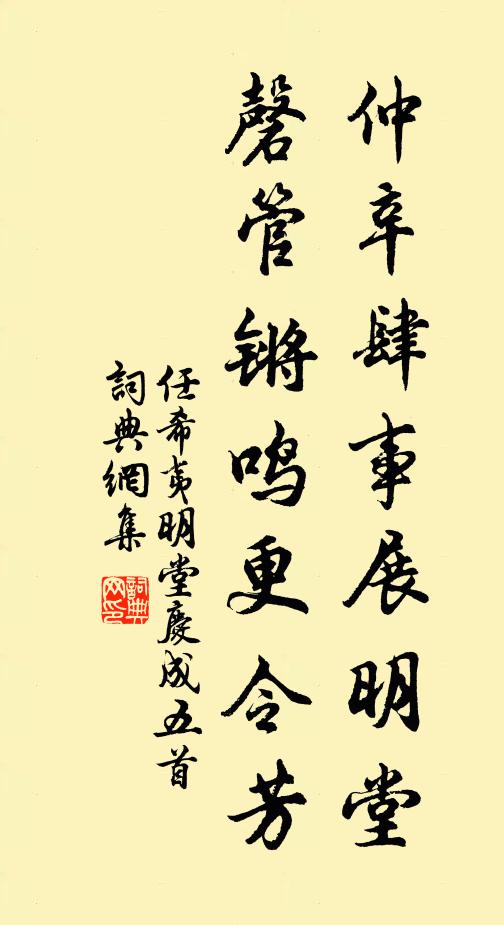 仲辛肆事展明堂
磬管锵鸣更令芳
任希夷明堂慶成五首
詞典網集
詞典網印